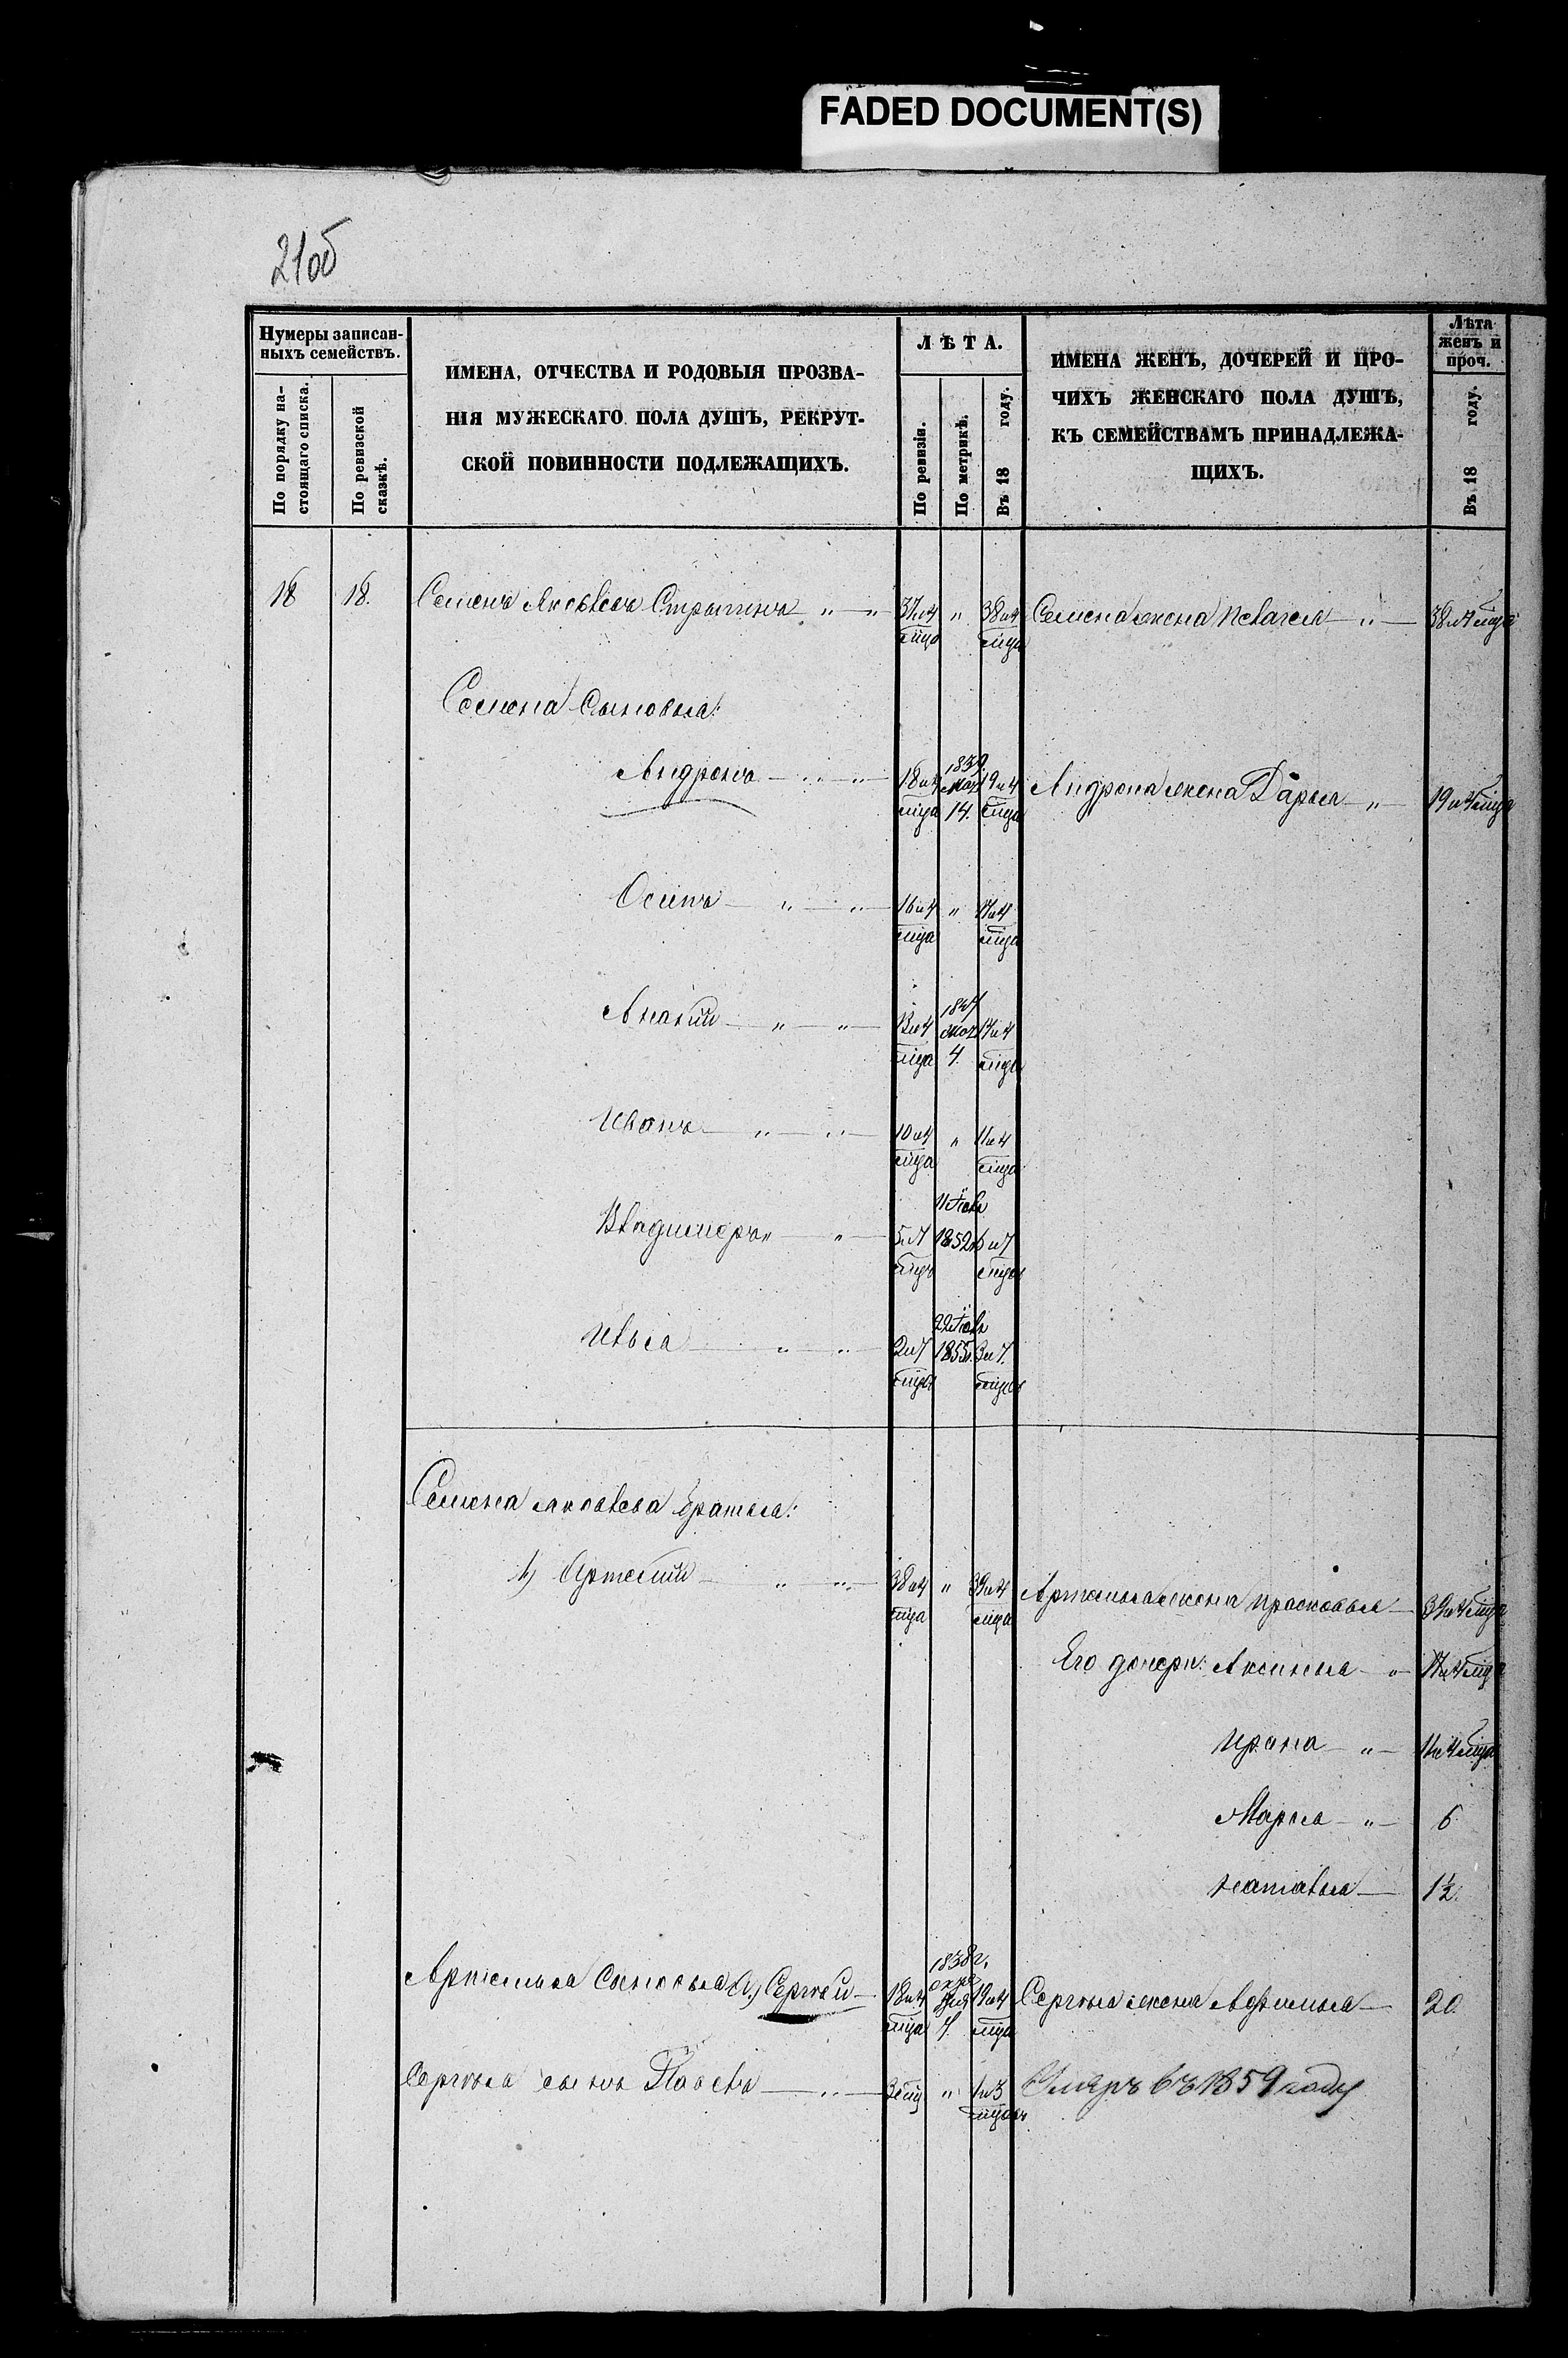 FADED DOCUMENT(S)
21об
Нумеры записан-
ныхъ семействъ.
По порядку на-
стоящаго списка.
По ревизской
сказкѣ.
ИМЕНА, ОТЧЕСТВА И РОДОВЫЯ ПРОЗВА-
НІЯ МУЖЕСКАГО ПОЛА ДУШЪ, РЕКРУТ-
СКОЙ ПОВИННОСТИ ПОДЛЕЖАЩИХЪ.
ЛѢТА.
По ревизіи.
По метрикѣ.
Въ 18 году.
ИМЕНА ЖЕНЪ, ДОЧЕРЕЙ И ПРО-
ЧИХЪ ЖЕНСКАГО ПОЛА ДУШЪ,
КЪ СЕМЕЙСТВАМЪ ПРИНАДЛЕЖА-
ЩИХЪ.
Лѣта
женъ и
проч.
Въ 18 году.
18 18. Семенъ Яковлевъ 37 и 4 мца " 38 и 4 мца Семена жена Пелагея 38 и 4 мца
Семена Сыновья:
Андронъ 18 и 4 мца 1839 14. 19 и 4 мца Андрона жена Дарья 19 и 4 мца
Осипъ 16 и 4 мца " 17 и 4 мца
Ананий 13 и 4 мца 1847 4. 14 и 4 мца
Иванъ 10 и 4 мца " 11 и 4 мца
Владимеръ 5 и 7 мцъ 11 Іюля 1852 6 и 7 мцъ
Илья 2 и 7 мцъ 22 Іюля 1855 3 и 7 мцъ
Семена Яковлева братья:
1) Артемий 38 и 4 мца " 39 и 4 мца Артемья жена Прасковья 39 и 4 мца
Его дочери: Аксинья 17 и 4 мца
Ирина 11 и 4 мца
Марья 6
Наталья 1½.
Артемья Сыновья а.) Сергѣй 18 и 4 мца 1838 г. октя бря 7. 19 и 4 мца Сергѣя жена Афимья 20.
Сергѣя сынъ Павелъ 3 мц " 1 и 3 мцовъ Умеръ въ 1859 году